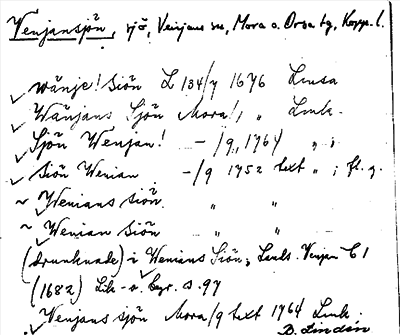 Venjansjön, sjö, Venjans sn, Mora o. Orsa tg, Kopp. l.
wänje! Siön L 134/7 1676 Lmsa
Wänjans Sjön Mora!, " Lmk.
Sjön Wenjan! -/9, 1764 " ;
Siön Wenian -/9 1752 text " ; fl. g.
~ Wenians Siön. " "
~ Wenian Siön " "
(drunknade) i Wenians Siön; Landsk. Venjan C 1
(1682) Lik- o. begr. s. 97
Venjans sjön Mora/9 text 1764 Lmk.
D. Lindén